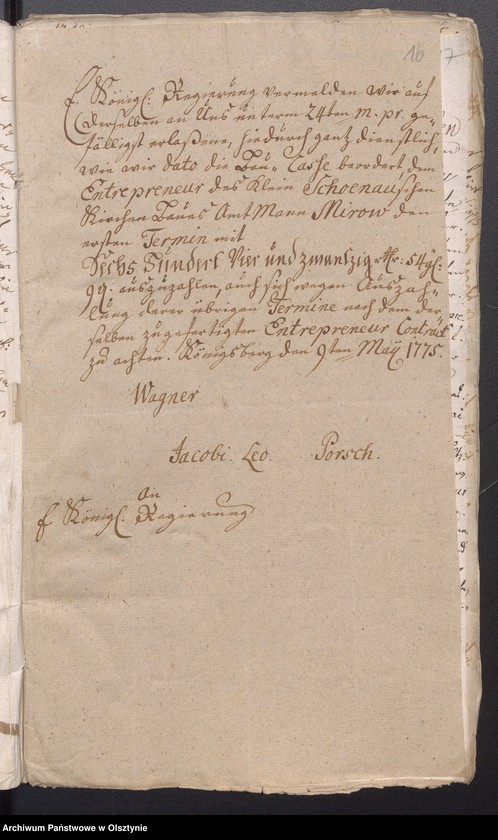 16
7
E. Königl: Regierung vermelden Wir auf
Derselben an Uns unterm 24ten m. pr. ge-
fälligst erlaßene, hiedurch ganz dienstlich,
wie wir dato die Bau-Casse beordert, dem
Entrepreneur des Klein Schoenauschen
Kirchen Baues Amt Mann Mirow den
ersten Termin mit
Sechs Hundert Vier und zwantzig rthr: 54 gl:
9 d. auszuzahlen, auch sich wegen Auszah-
lung derer übrigen Termine nach dem der-
selben zugefertigten Entrepreneur Contract
zu achten. Königsberg den 9ten Maÿ 1775.
Wagner
Jacobi Leo. Porsch.
An
E. Königl: Regierung
Archiwum Państwowe w Olsztynie